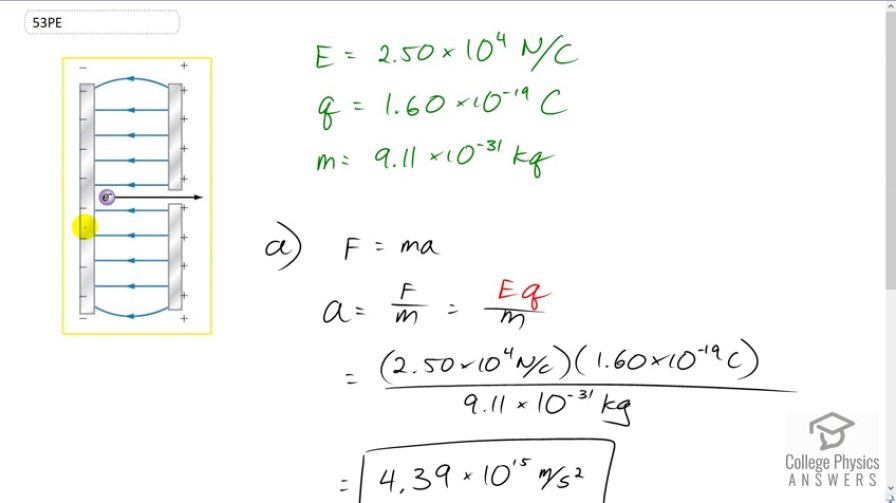 53PE
E = 2.50 × 10⁴ N/C
q = 1.60 × 10⁻¹⁹ C
m = 9.11 × 10⁻³¹ kg
− +
− +
− +
− +
− +
− +
e⁻
− +
− +
− +
− +
− +
a) F = ma
a = F/m = Eq/m
= (2.50 × 10⁴ N/C)(1.60 × 10⁻¹⁹ C)
9.11 × 10⁻³¹ kg
= 4.39 × 10¹⁵ m/s²
College Physics
ANSWERS